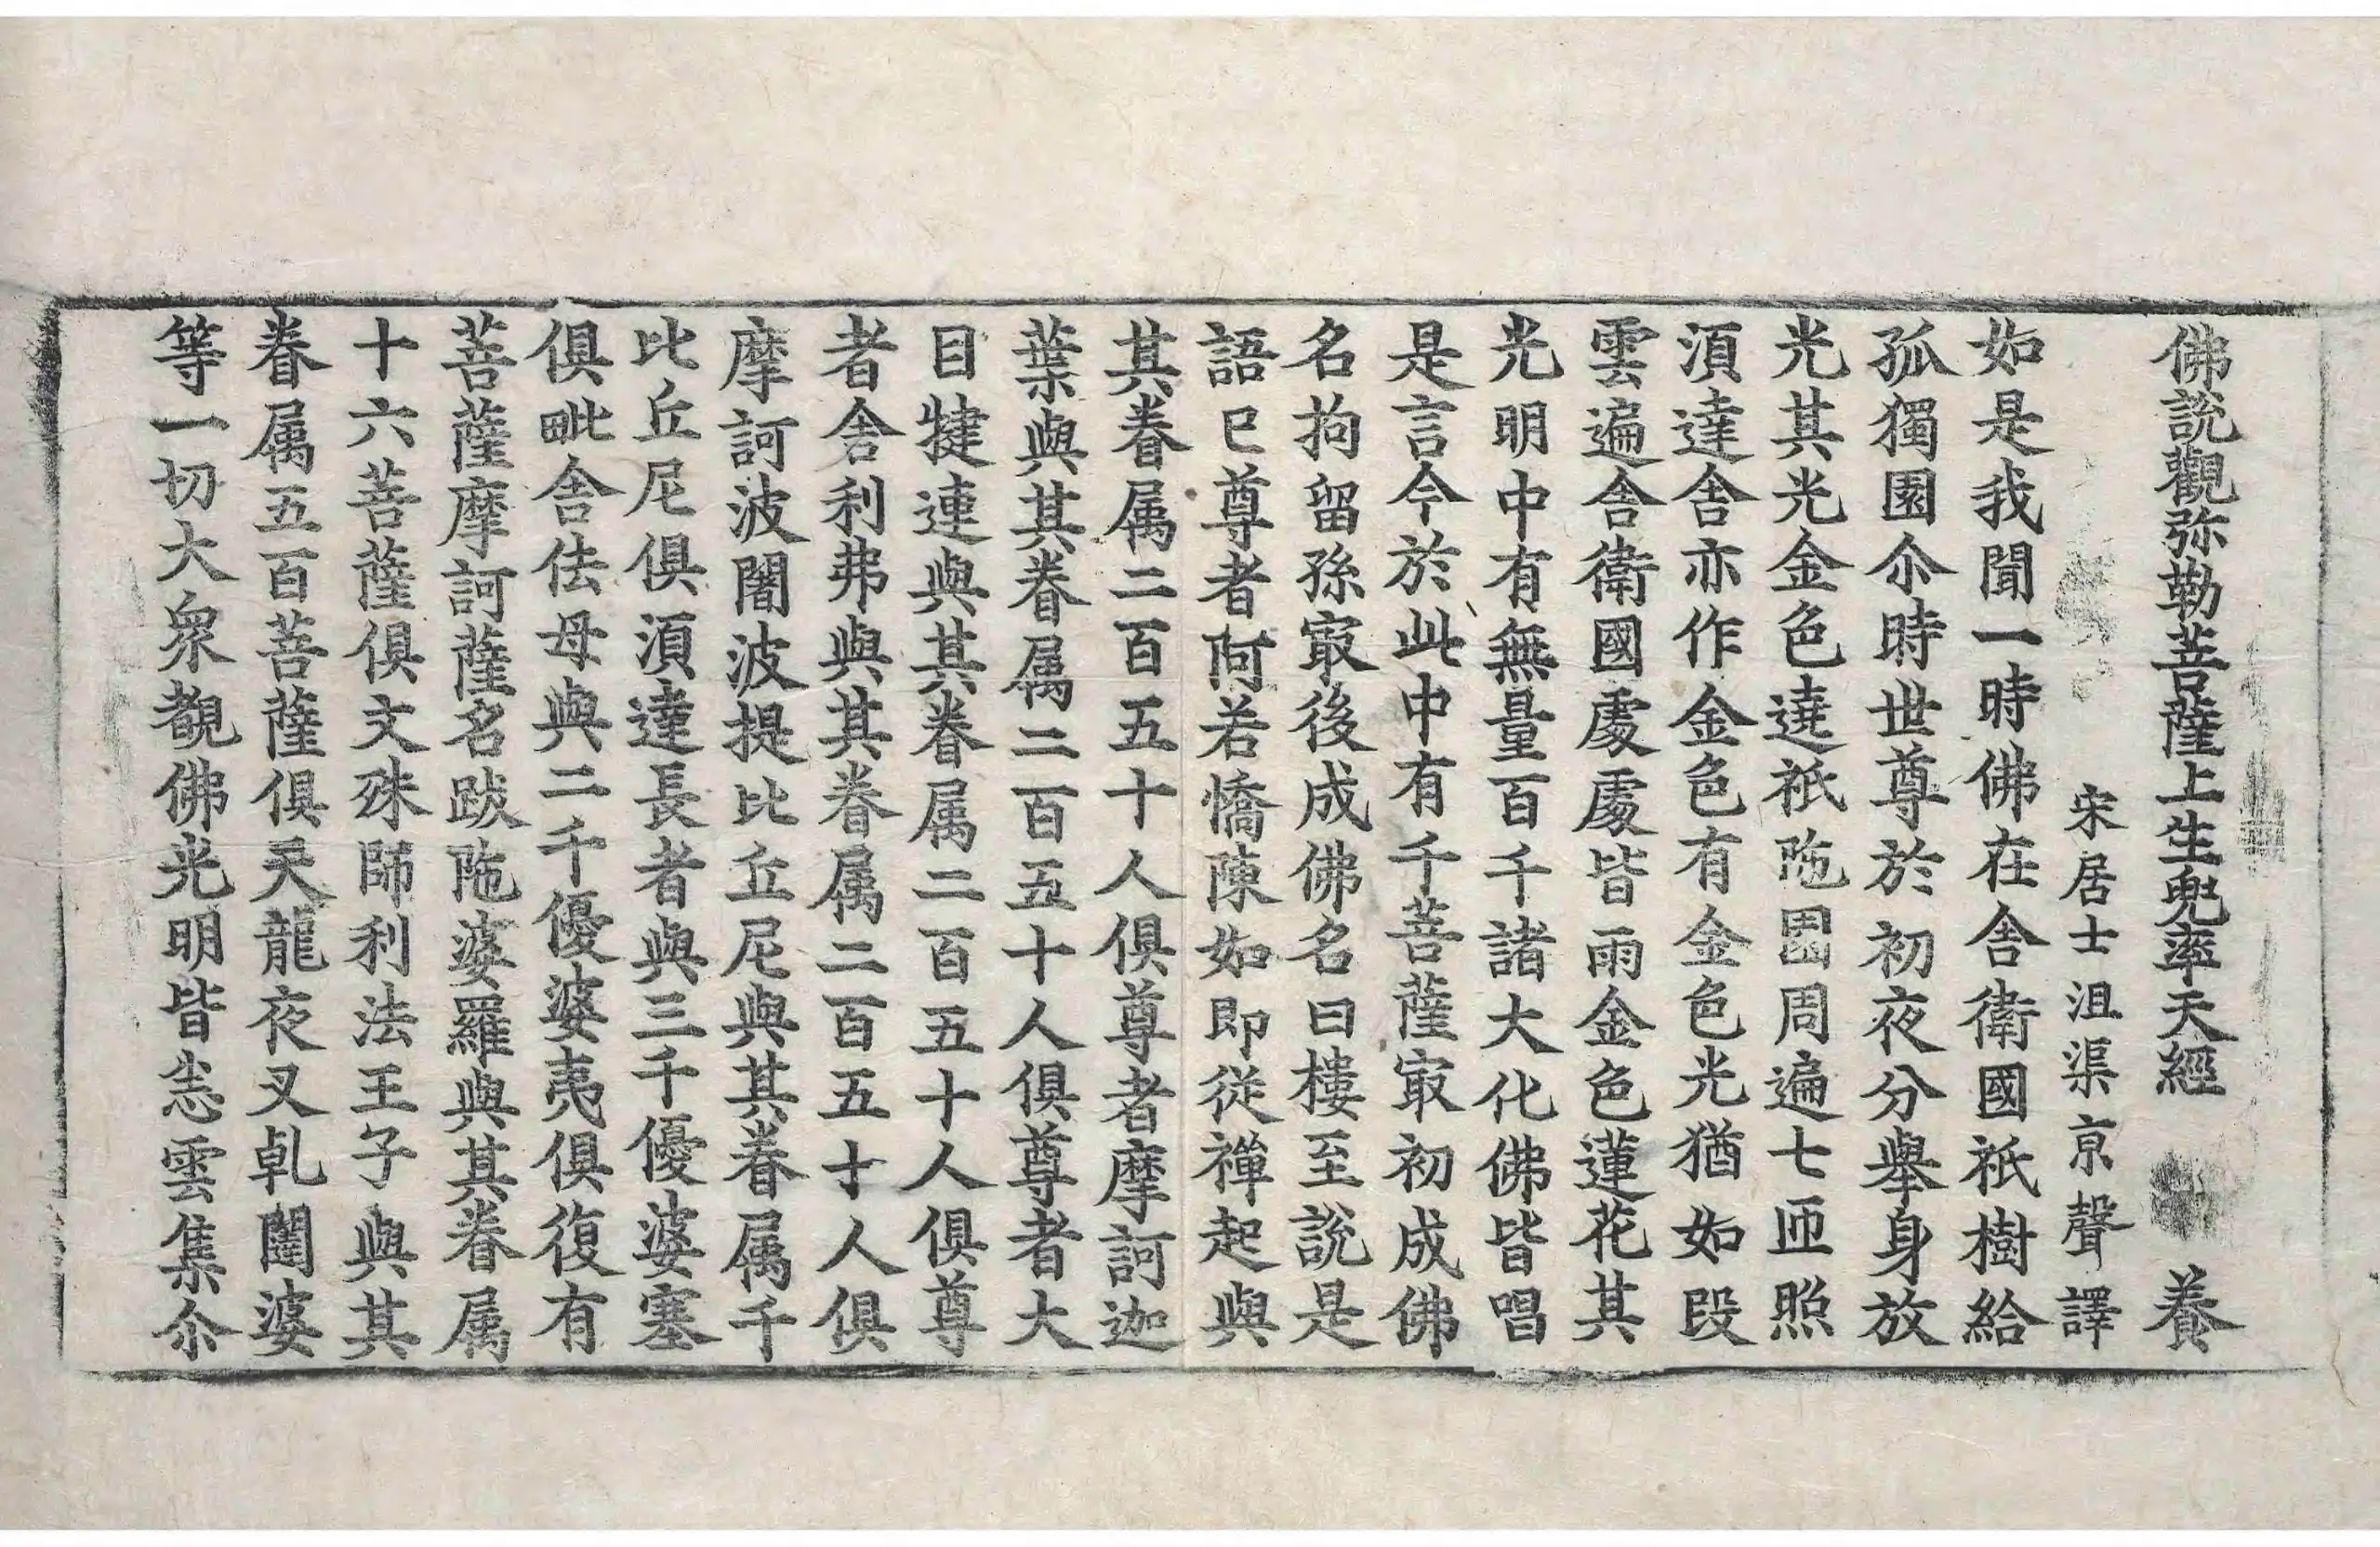 佛說觀弥勒菩薩上生兜率天經 養
宋居士沮渠京聲譯
如是我聞一時佛在舍衛國祇樹給
孤獨園尒時世尊於初夜分舉身放
光其光金色遶祇陁園周遍七匝照
湏達舍亦作金色有金色光猶如段
雲遍舍衛國處處皆雨金色蓮花其
光明中有無量百千諸大化佛皆唱
是言今於此中有千菩薩㝡初成佛
名拘留孫㝡後成佛名曰樓至說是
語已尊者阿若憍陳如即從禪起與
其眷属二百五十人俱尊者摩訶迦
葉與其眷属二百五十人俱尊者大
目犍連與其眷属二百五十人俱尊
者舍利弗與其眷属二百五十人俱
摩訶波闍波提比丘尼與其眷属千
比丘尼俱湏達長者與三千優婆塞
俱毗舍佉母與二千優婆夷俱復有
菩薩摩訶薩名跋陁婆羅與其眷属
十六菩薩俱文殊師利法王子與其
眷属五百菩薩俱天龍夜叉乹闥婆
等一切大衆覩佛光明皆悉雲集尒